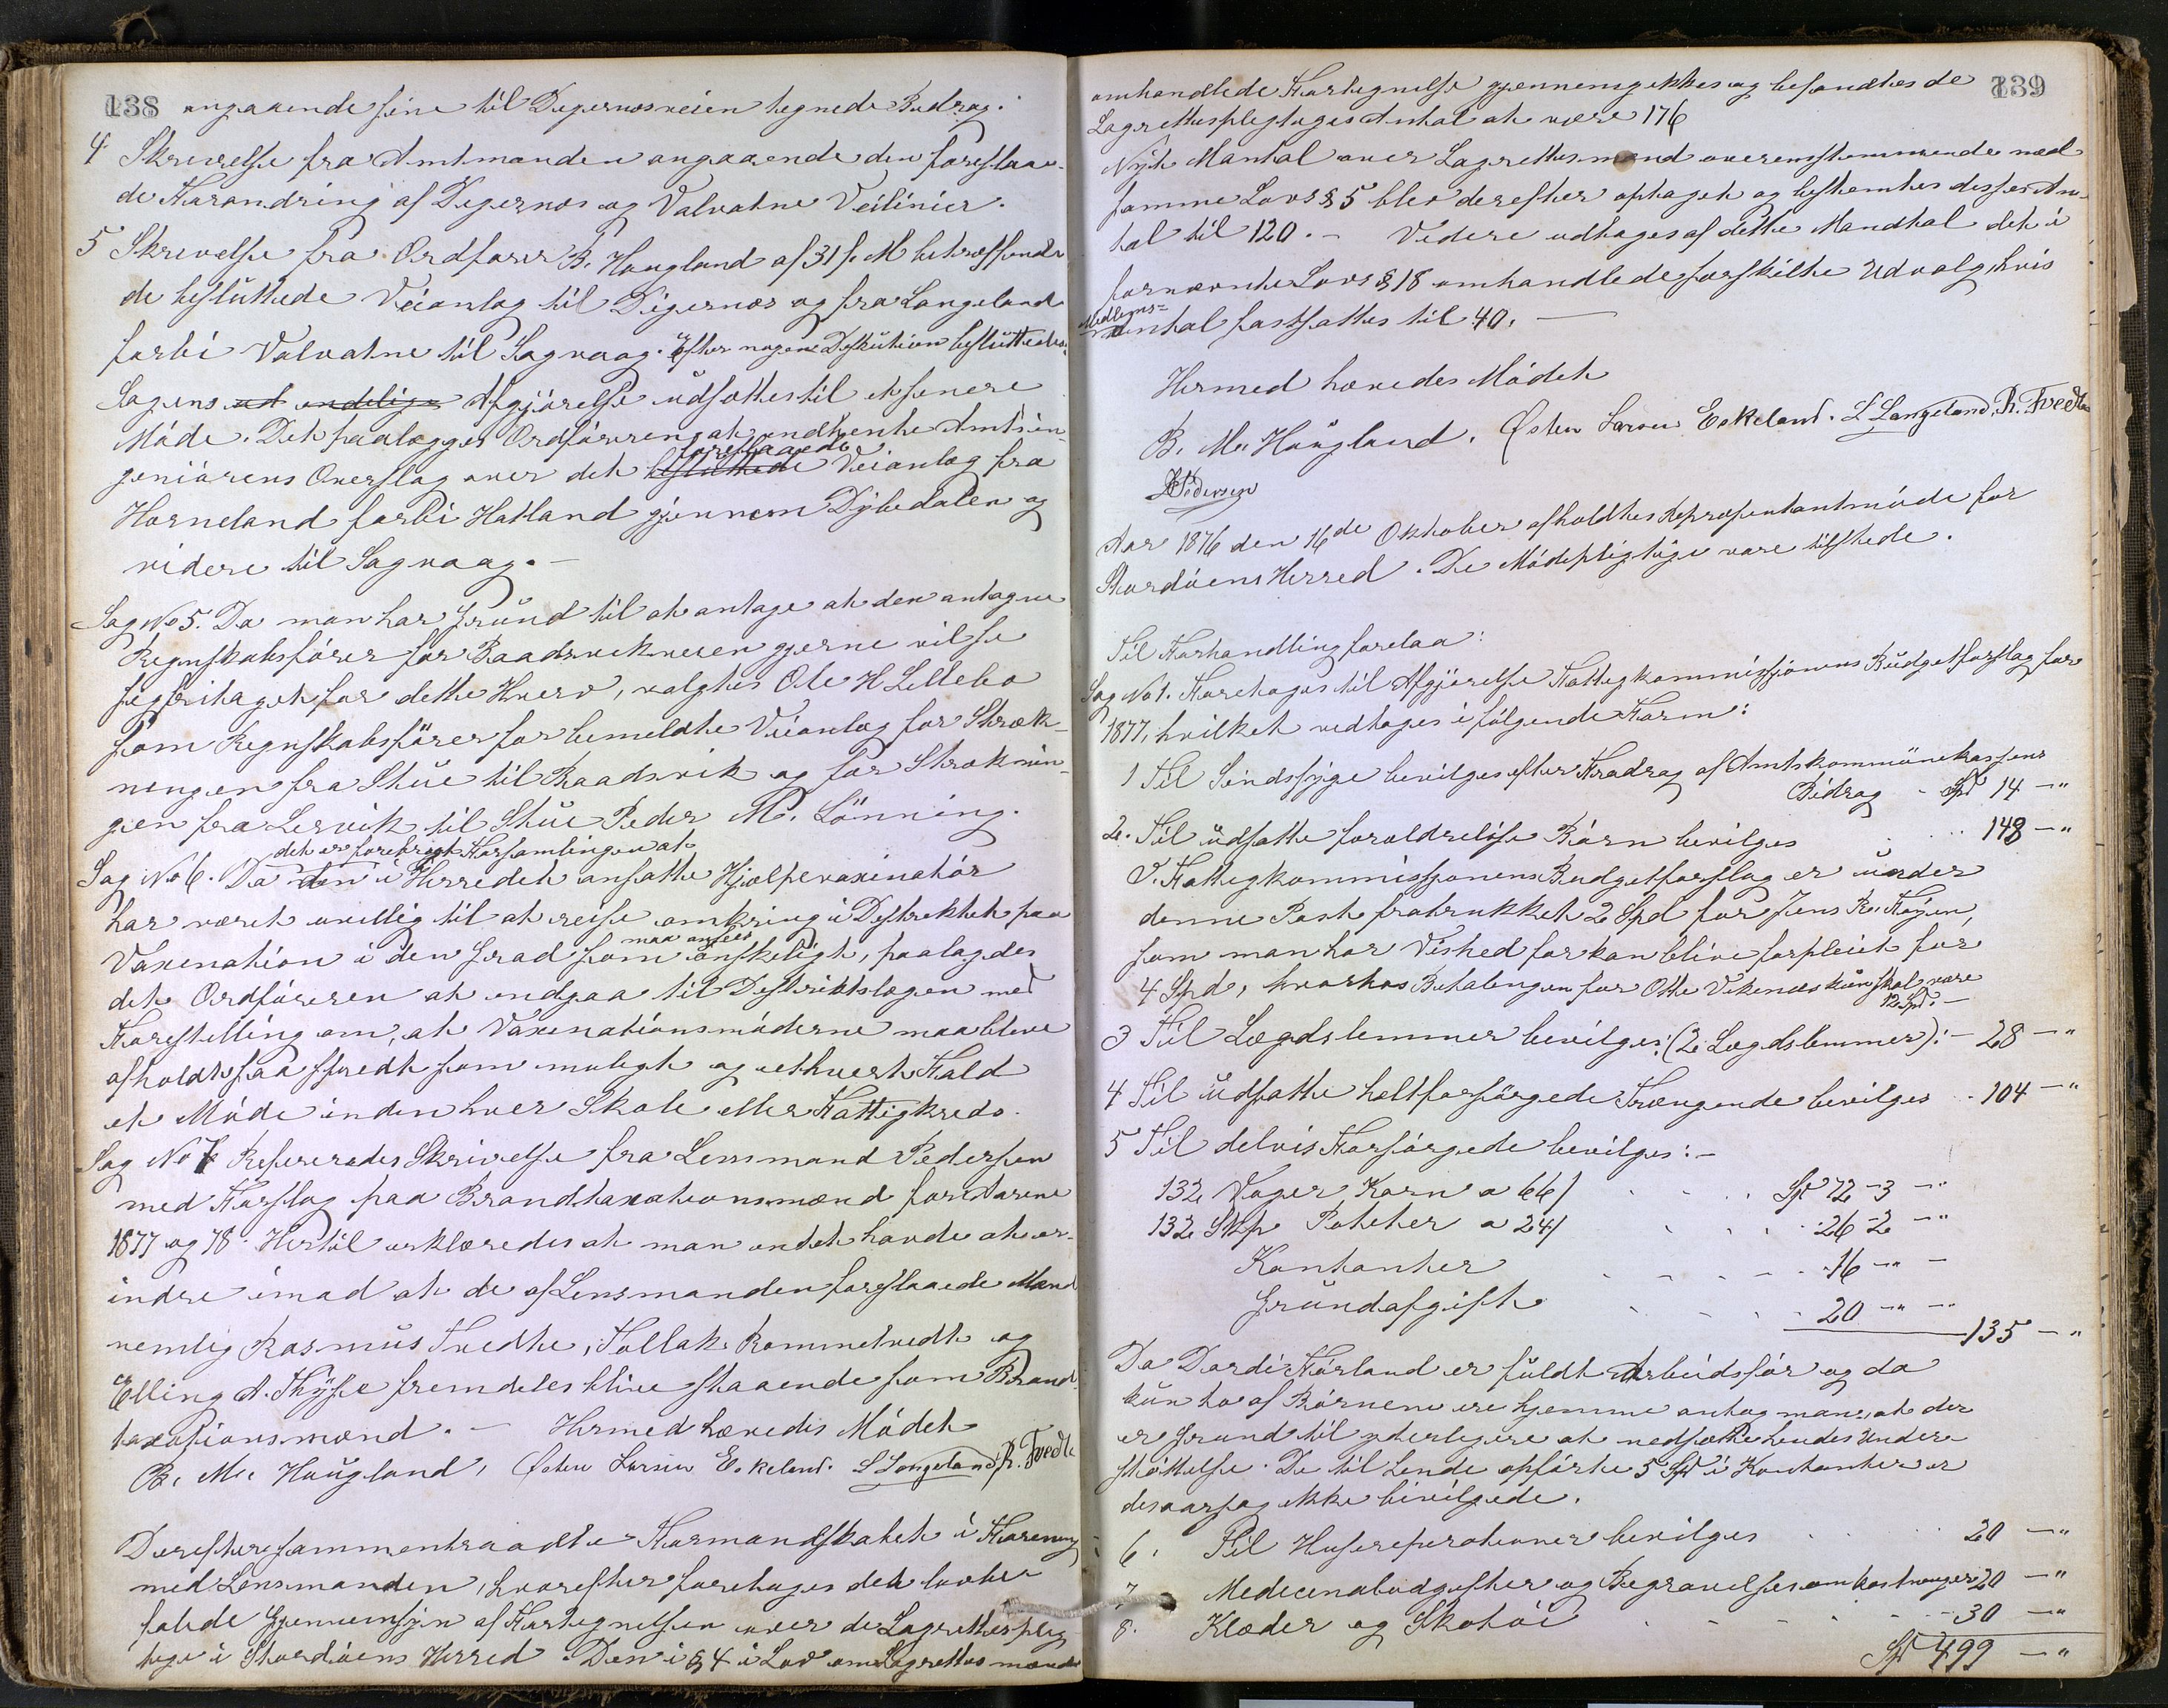 138
angaaende sine til Digernæsveien tegnede Bidrag.
4 Skrivelse fra Amtmanden angaaende den foreslaae-
de Forandring af Digernæs og Valvatne Veilinier.
5 Skrivelse fra Ordfører B. Hougland af 31 f. M betreffende
de besluttede Veianlæg til Digernæs og fra Langeland
forbi Valvatne til Sagvaag. Efter nogen Diskution besluttedes
Sagens endelige Afgjørelse udsattes til et senere
Møde. Det paalægges Ordføreren at indhente Amtsin-
foreslaaede
geniørens Overslag over det besluttede Veianlæg fra
Horneland forbi Hatland gjennem Dybedalen og
videre til Sagvaag. —
Sag No 5. Da man har Grund til at antage at den antagne
Regnskabsfører for Baadsvikveien gjerne vil se
sig fritaget for dette Hverv, valgtes Ole H Lillebø
som Regnskabsfører for bemeldte Veianlæg for Stræk-
ningen fra Stue til Baadsvik og for Stræknin-
gen fra Lervik til Stue Peder M. Lönning.
det er forebragt Forsamlingen at
Sag No 6. Da den i Herredet ansatte Hjælpevaxinatör
har været uvillig til at reise omkring i Distriktet paa
maa ansees
Vaxination i den Grad som ønskeligt, paalagdes
det Ordføreren at indgaa til Distriktslægen med
Forestilling om, at Vaxinationsmøderne maa blive
afholdt saa spredt som muligt og ethvert Fald
et Møde inden hver Skole eller Fattigkreds.
Sag No 7 Refereredes Skrivelse fra Lensmand Pedersen
med Forslag paa Brandtaxationsmænd for Aarene
1877 og 78. Hertil erklæredes at man intet havde at er-
indre imod at de af Lensmanden foreslaaede Mænd
nemlig Rasmus Tvedte, Tollak Rommetvedt og
Elling A. Thyse fremdeles blive staaende som Brand-
taxationsmænd. — Hermed hævedes Mödet
B. M. Hougland, Østen Larsen Eskeland. L Langeland, R. Tvedte
Derefter sammentraadte Formandskabet i Forening
med Lensmanden, hvorefter foretoges det lovbe-
falede Gjennemsyn af Fortegnelsen over de Lagrettesplig-
tige i Stordöens Herred. Den i § 4 i Lov om Lagrettesmænd
139
omhandlede Fortegnelse gjennemgikkes og befandtes de
Lagrettespligtiges Antal at være 176
Nyt Mantal over Lagrettesmænd overensstemmende med
samme Lovs § 5 blev derefter optaget og bestemtes disses An-
tal til 120. — Videre udtoges af dette Mandtal det i
fornævnte Lovs § 18 omhandlede særskilte Udvalg, hvis
Medlems-
antal fastsattes til 40. —
Hermed hævedes Mødet
B. M. Hougland. Østen Larsen Eskeland. L Langeland, R. Tvedte
Pedersen
Aar 1876 den 16de Oktober afholdtes Repræsentantmöde for
Stordöens Herred. De Mödepligtige vare tilstede.
Til Forhandling forelaa:
Sag No 1. Foretoges til Afgjørelse Fattigkommissjonens Budgetforslag for
1877, hvilket vedtoges i følgende Form:
1 Til Sindssyge bevilges efter Fradrag af Amtskommünekassens
Bidrag - Spd 14 — "
2. Til udsatte foroldreløse Børn bevilges 148 — "
I Fattigkommissjonens Budgetforslag er under
denne Post fratrukket 2 Spd for Jens
som man har Vished for kan blive forpleiet for
4 Spd, hvorhos Betalingen for Otte Vikenes kun skal være
12 Spd. —
3 Til Lægdslemmer bevilges: (2 Lægdslemmer): — 28 — "
4 Til udsatte heltforsørgede Trængende bevilges . 104 — "
5 Til delvis Forsørgede bevilges: —
132 Voger Korn a 66/ Spd 72 - 3 - "
132 Skp Poteter a 24/ 26 - 2 - "
Kontanter 16 - " -
Grundafgift 20 - " - "
135 — "
Da Dordi Förland er fuldt Arbeidsfør og da
kun to af Börnene ere hjemme antog man, at der
er Grund til yderligere at nedsætte hendes Under-
støttelse. De til hende opførte 5 Spd i Kontanter er
desaarsag ikke bevilgede.
6. Til Husereperationer bevilges 20 — "
7. Medecinaludgifter og Begravelsesomkostninger 20 — "
8. Klæder og Skotøi 30 — "
Spd 499 — "